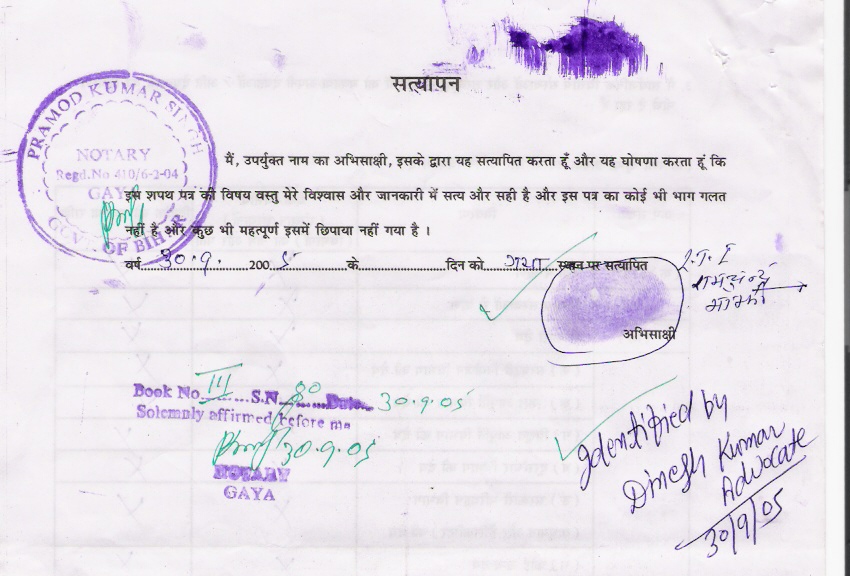 सत्यापन
PRAMOD KUMAR SINGH
NOTARY
Regd.No 410/6-2-04
GAYA
GOVT. OF BIHAR
मैं, उपर्युक्त नाम का अभिसाक्षी, इसके द्वारा यह सत्यापित करता हूँ और यह घोषणा करता हूं कि
इस शपथ पत्र की विषय वस्तु मेरे विश्वास और जानकारी में सत्य और सही है और इस पत्र का कोई भी भाग गलत
नहीं है और कुछ भी महत्वपूर्ण इसमें छिपाया नहीं गया है ।
वर्ष 30.9. 2005 के दिन को गया स्थान पर सत्यापित
L.T.I
रामचन्द्र
माझी
अभिसाक्षी
Book No III S.N. 80 Date 30.9.05
Solemnly affirmed before me
30.9.05
NOTARY
GAYA
Identified by
Dinesh Kumar
Advocate
30/9/05